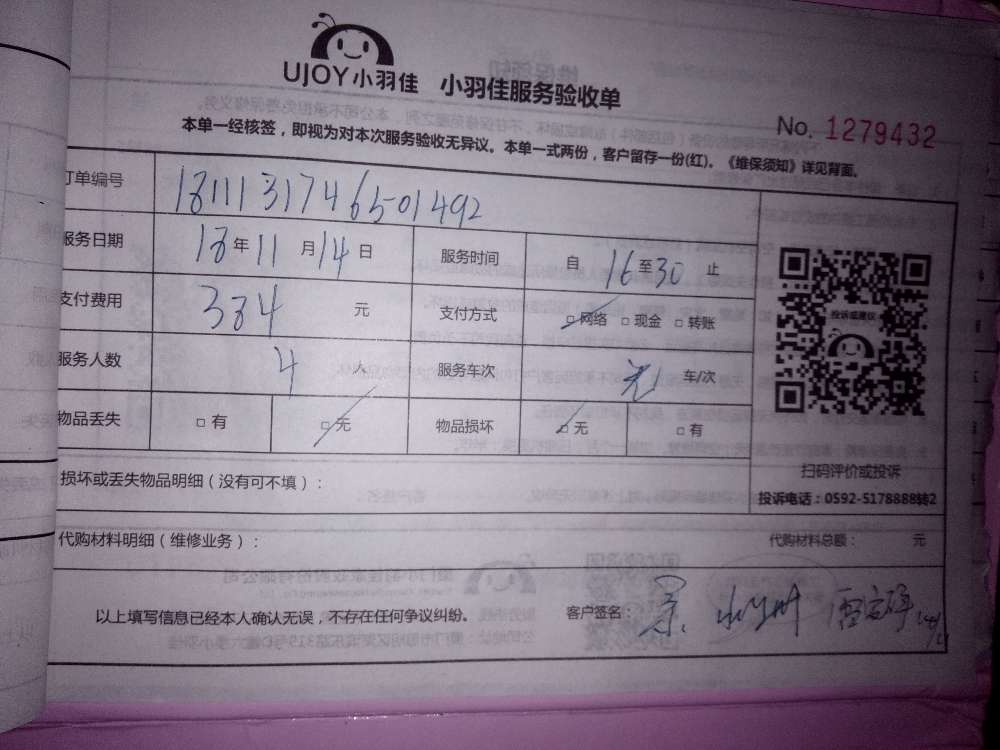 UJOY小羽佳 小羽佳服务验收单
No. 1279432
本单一经核签，即视为对本次服务验收无异议。本单一式两份，客户留存一份(红)。《维保须知》详见背面。
订单编号 1811131746501492
服务日期 18年11月14日 服务时间 自16至30止
支付费用 384元 支付方式 □网络 □现金 □转账
服务人数 4人 服务车次 车/次
物品丢失 □有 □无 物品损坏 □无 □有
投诉或建议
扫码评价或投诉
投诉电话：0592-5178888转2
损坏或丢失物品明细（没有可不填）：
代购材料明细（维修业务）： 代购材料总额： 元
以上填写信息已经本人确认无误，不存在任何争议纠纷。 客户签名：